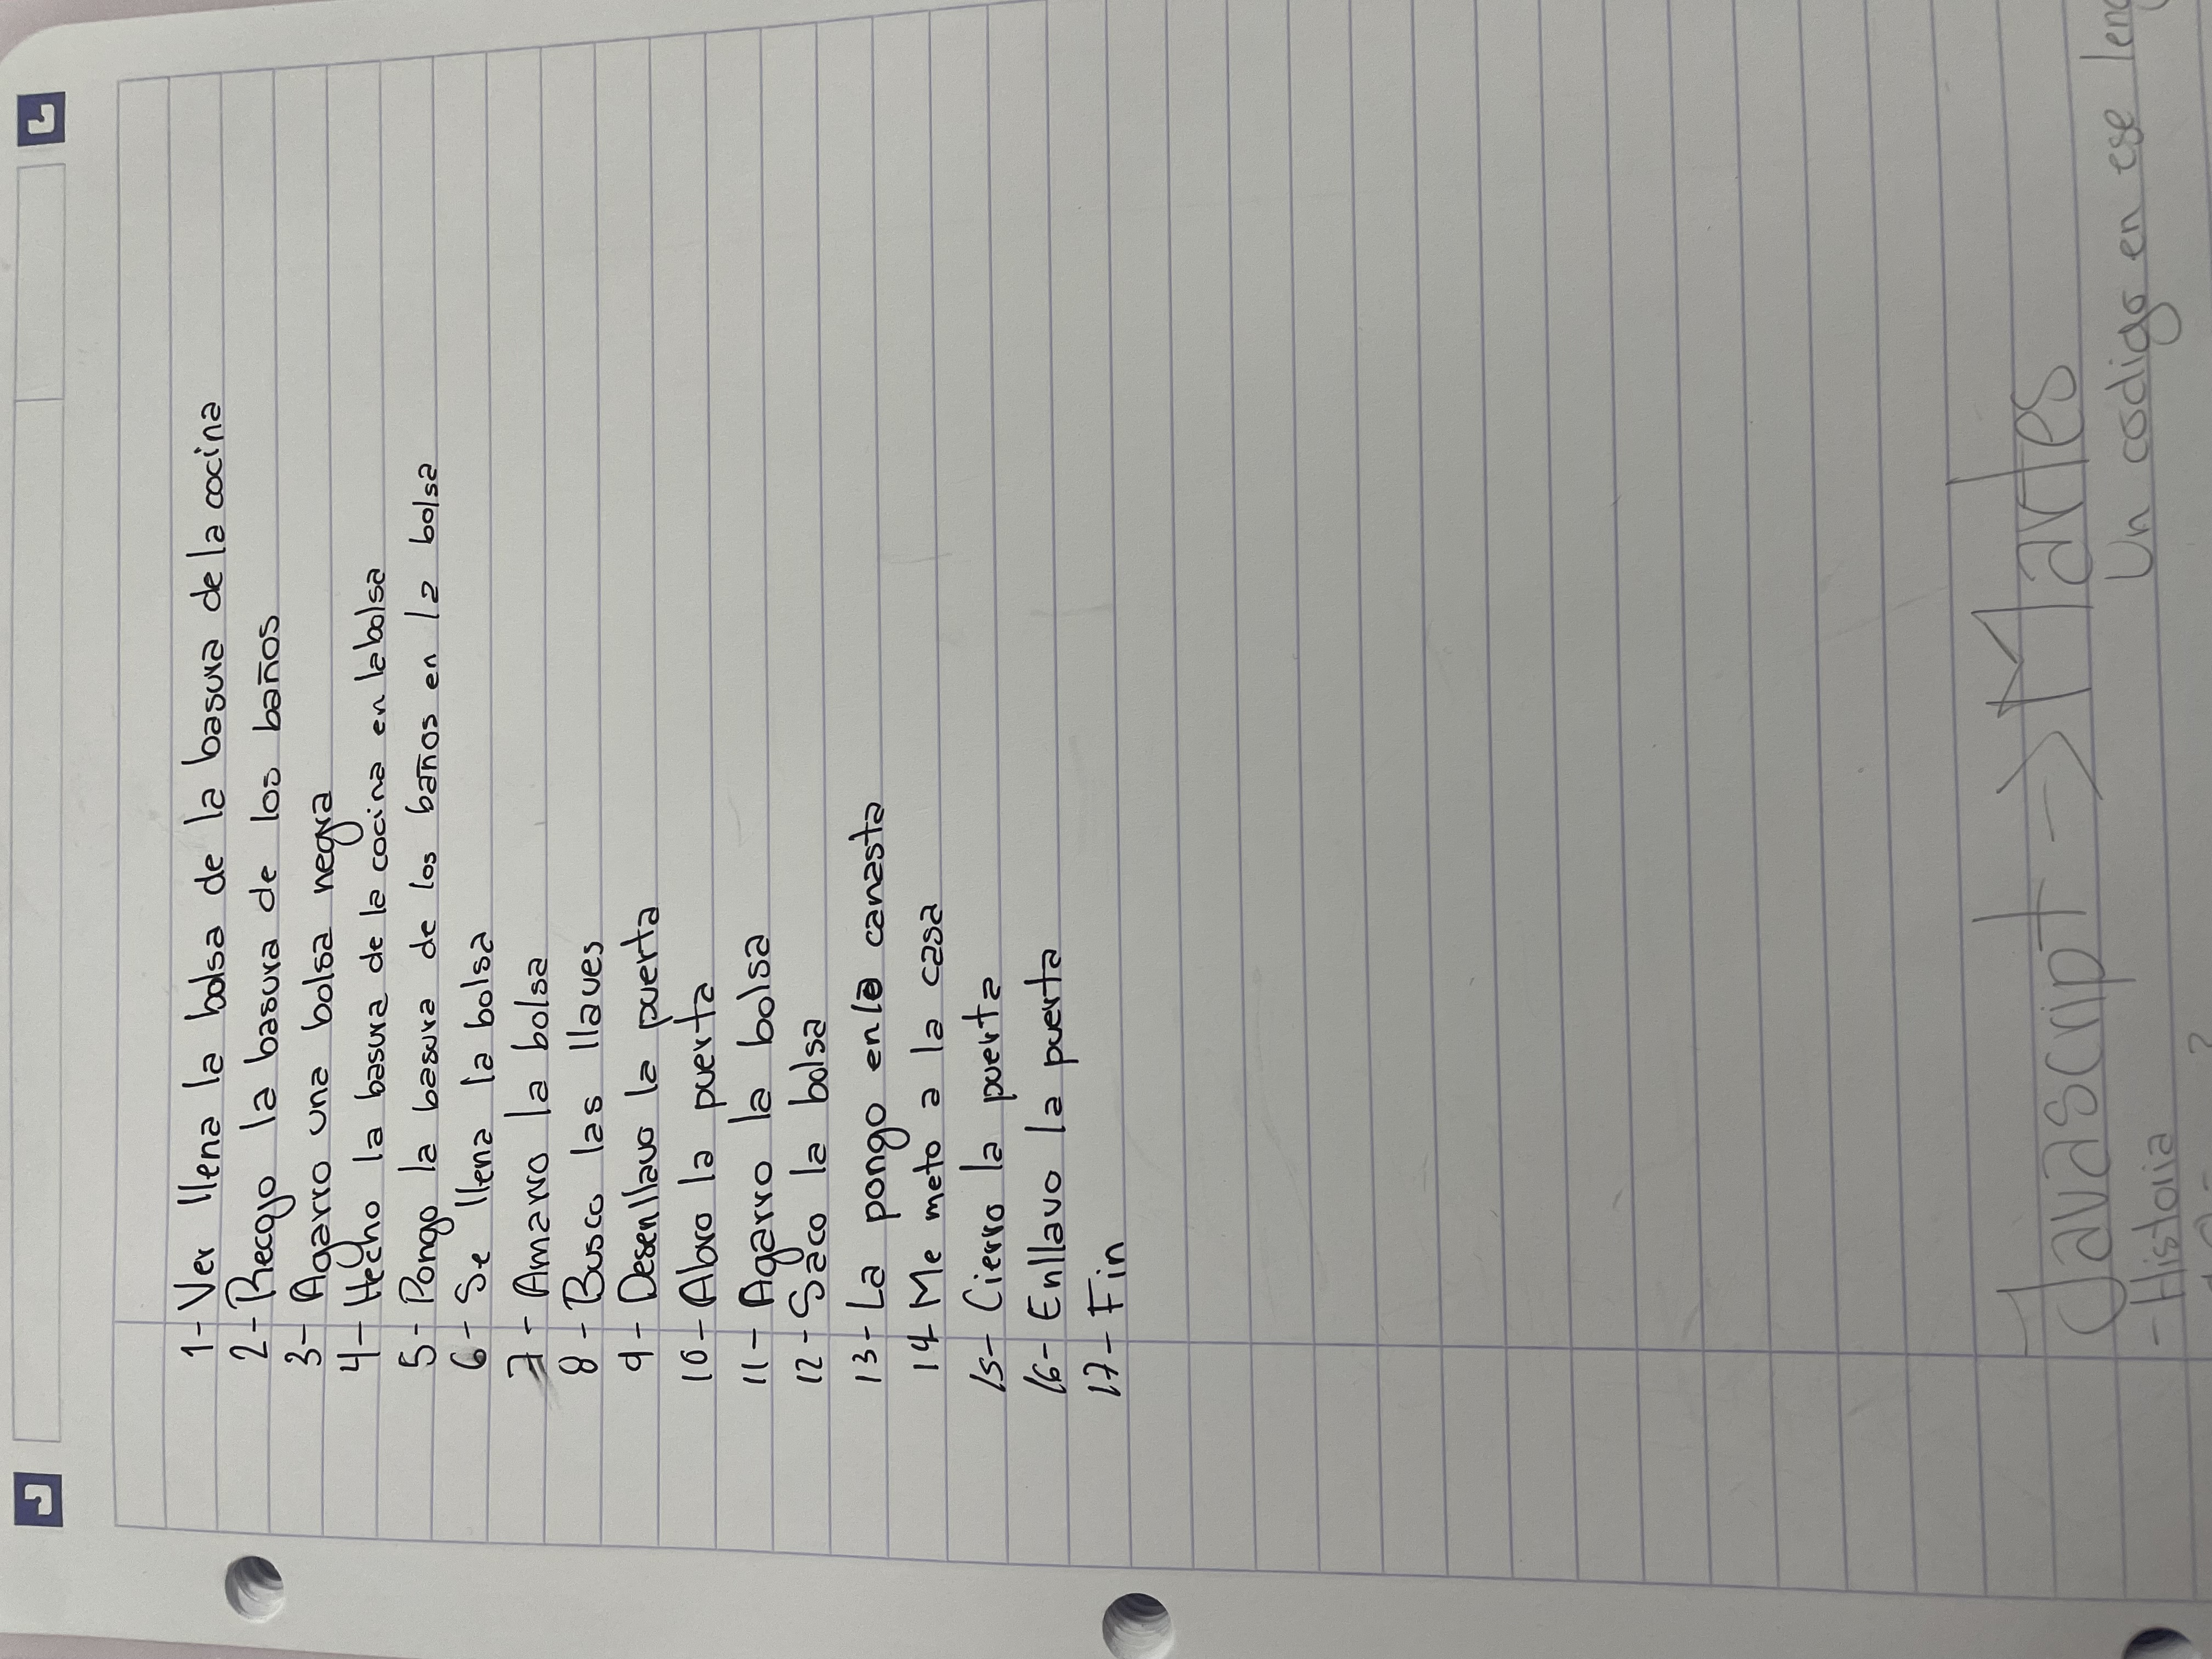 1- Ver llena la bolsa de la basura de la cocina
2- Recogo la basura de los baños
3- Agarro una bolsa negra
4- Hecho la basura de la cocina en la bolsa
5- Pongo la basura de los baños en la bolsa
6- Se llena la bolsa
7- Amarro la bolsa
8- Busco las llaves
9- Desenllavo la puerta
10- Abro la puerta
11- Agarro la bolsa
12- Saco la bolsa
13- La pongo en la canasta
14- Me meto a la casa
15- Cierro la puerta
16- Enllavo la puerta
17- Fin
Javascript -> Martes
- Historia
Un codigo en ese